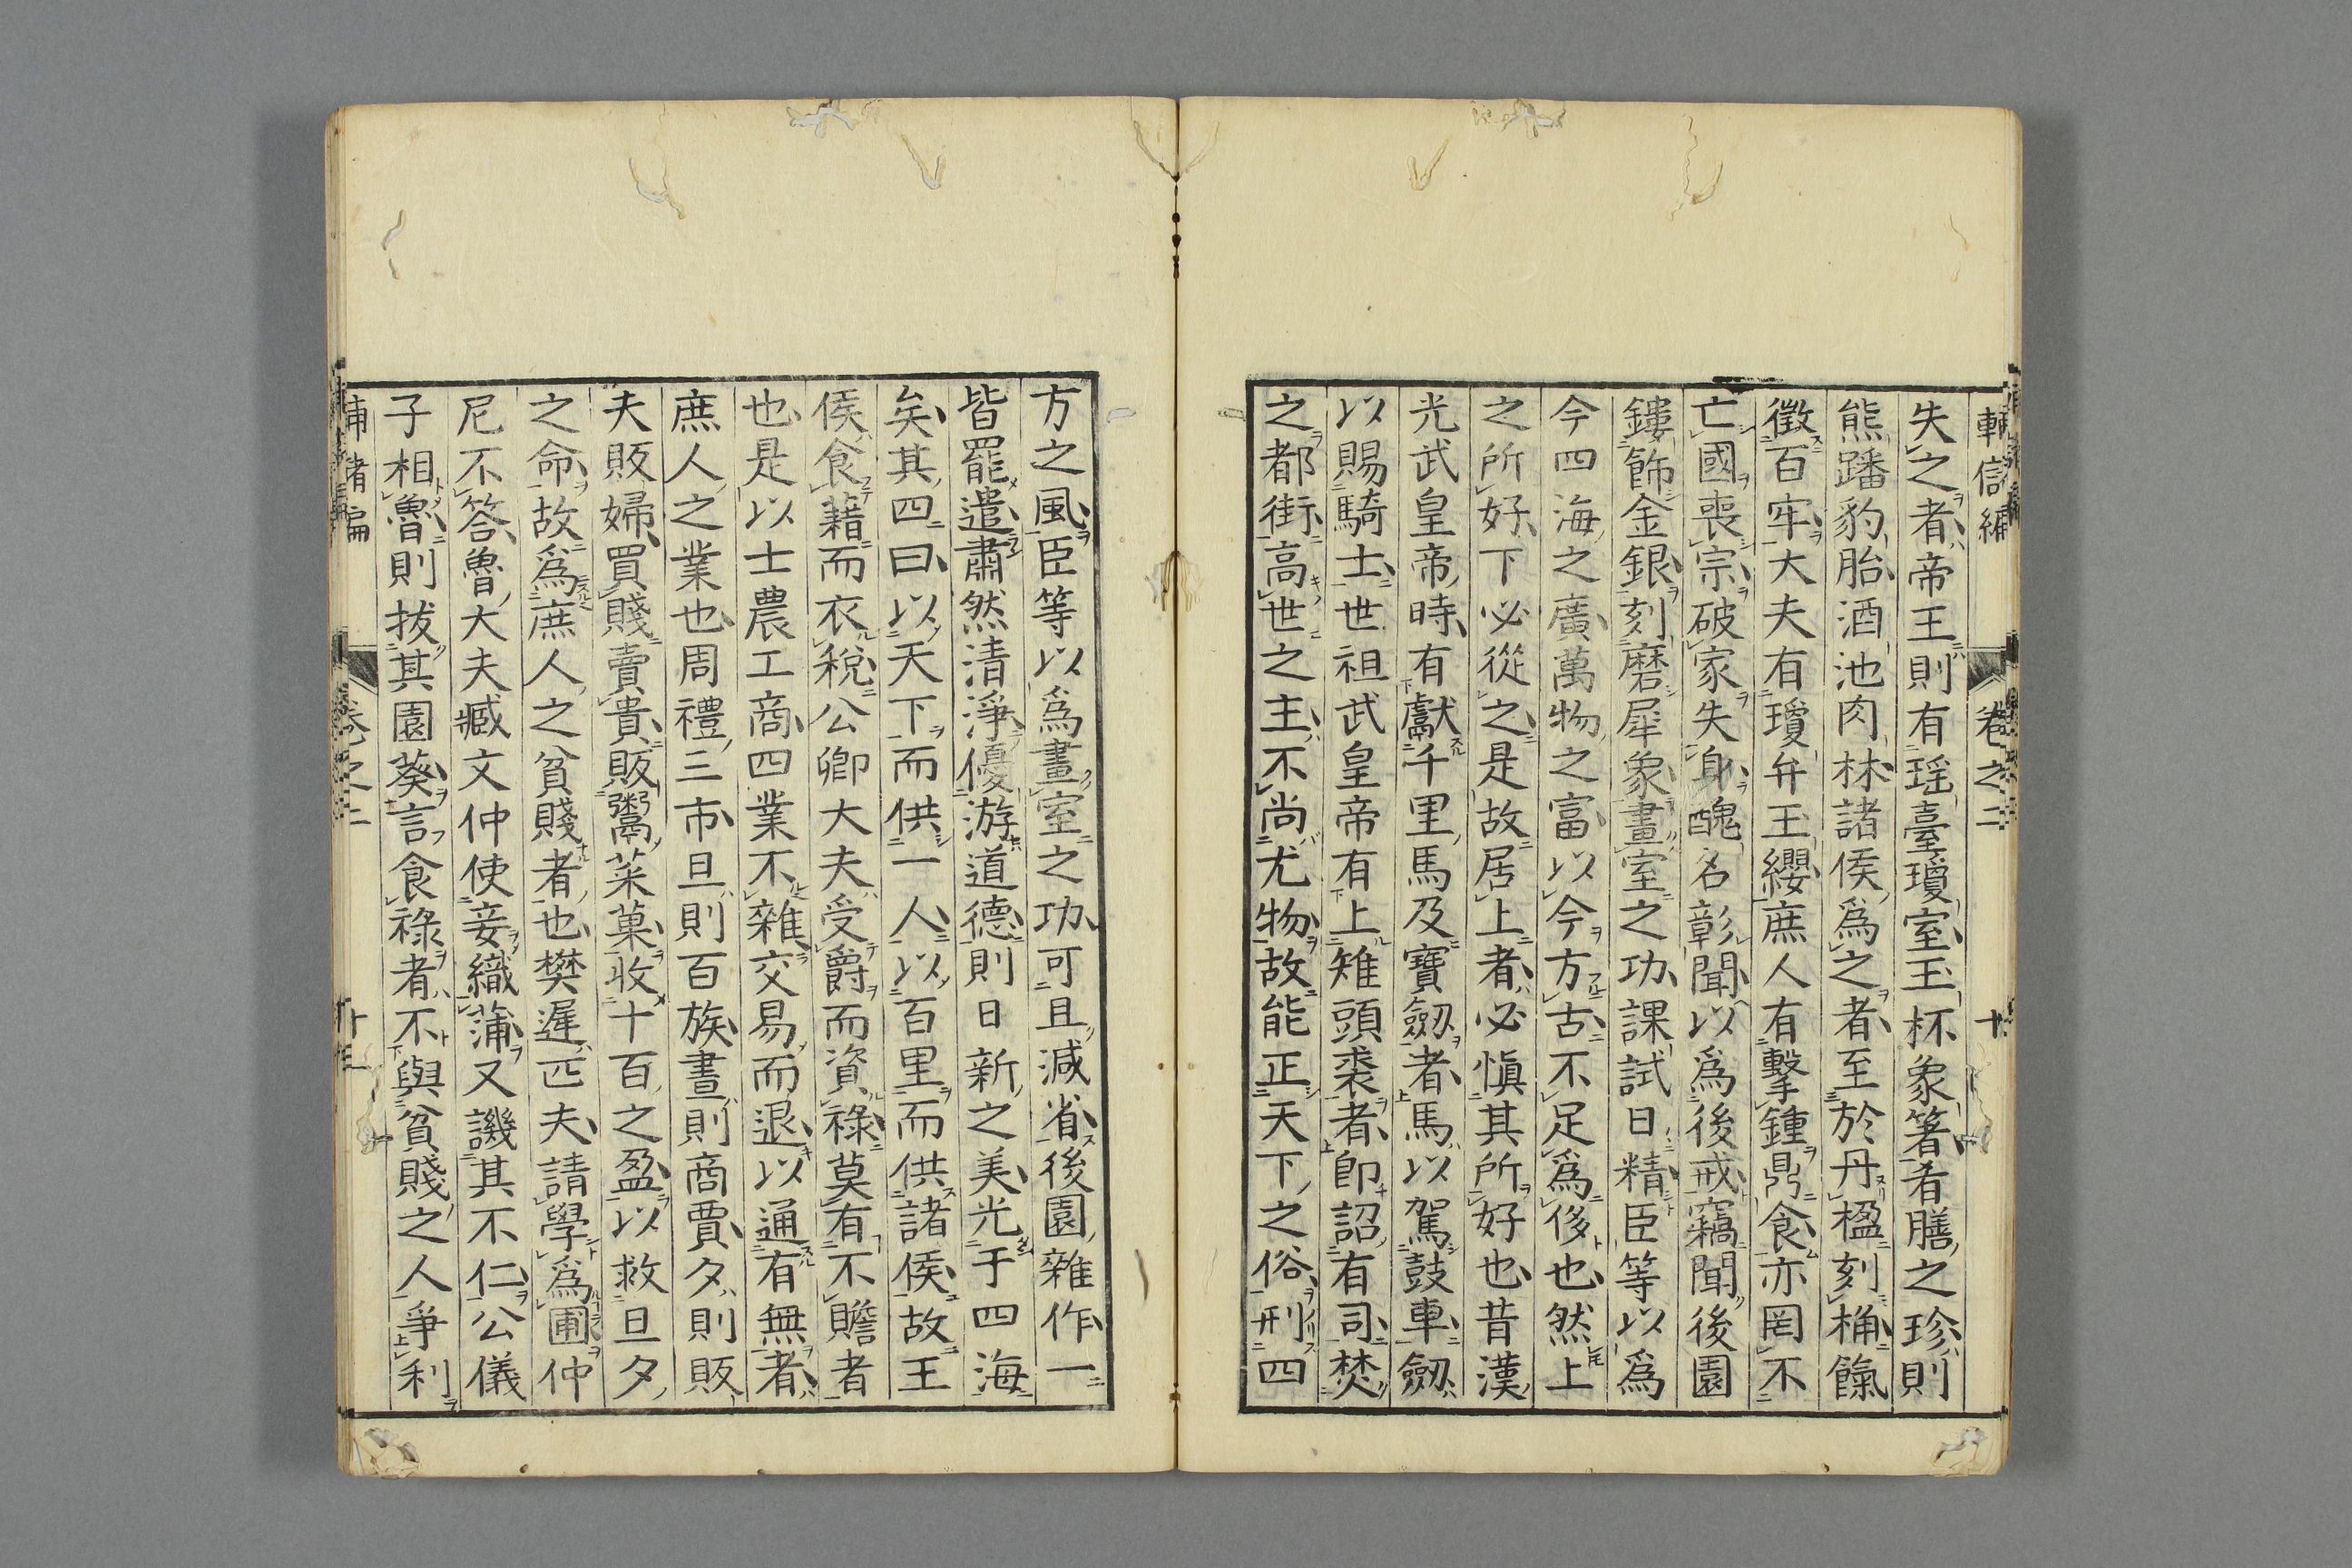 卷之二
失之者帝王則有瑶臺瓊室玉杯象箸肴膳之珍則
熊蹯豹胎酒池肉林諸侯爲之者至於丹楹刻桷餼
徴百牢大夫有瓊弁玉纓庶人有擊鍾鼎食亦罔不
亡國喪宗破家失身醜名彰聞以爲後戒竊聞後園
鏤飾金銀刻磨犀象畫室之功課試日精臣等以爲
今四海之廣萬物之富以今方古不足爲侈也然上
之所好下必從之是故居上者必愼其所好也昔漢
光武皇帝時有獻千里馬及寶劔者馬以駕鼓車劔
以賜騎士世祖武皇帝有上雉頭裘者卽詔有司焚
之都街高世之主不尚尤物故能正天下之俗刑四
方之風臣等以爲畫室之功可且減省後園雜作一
皆罷遣肅然清淨優游道德則日新之美光于四海
矣其四曰以天下而供一人以百里而供諸侯故王
侯食藉而衣稅公卿大夫受爵而資祿莫有不贍者
也是以士農工商四業不雜交易而退以通有無者
庶人之業也周禮三市旦則百族晝則商賈夕則販
夫販婦買賤賣貴販鬻菜菓收十百之盈以救旦夕
之命故爲庶人之貧賤者也樊遲匹夫請學爲圃仲
尼不答魯大夫臧文仲使妾織蒲又譏其不仁公儀
子相魯則拔其園葵言食祿者不與貧賤之人爭利